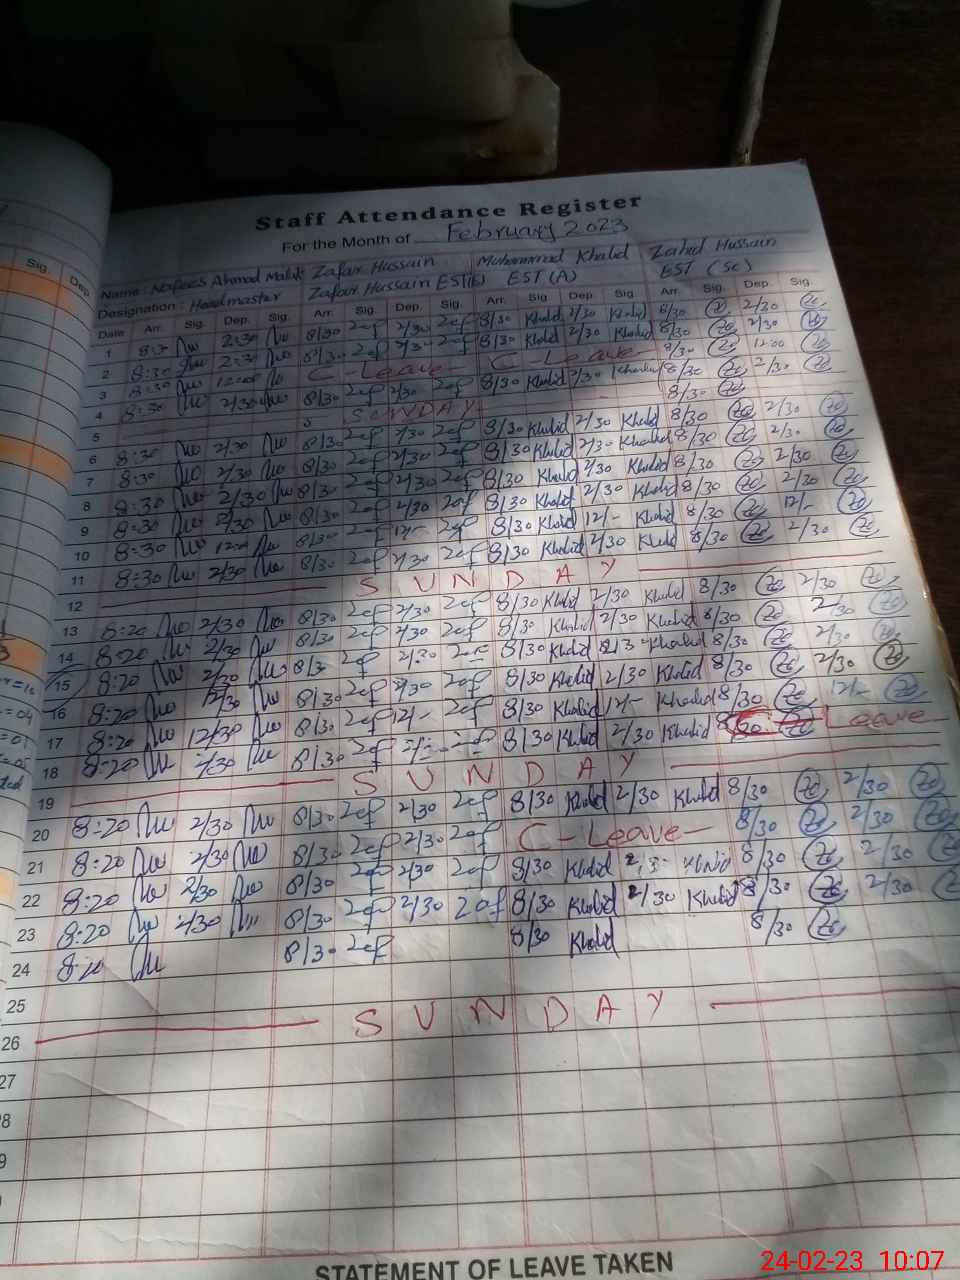 Staff Attendance Register
For the Month of February 2023
Name: Nafees Ahmad Malik Zafar Hussain Muhammad Khalid Zahid Hussain
Designation: Headmaster Zafar Hussain EST(E) EST (A) EST (Sc)
Sig. Dep.
Date Arr. Sig. Dep. Sig. Arr. Sig. Dep. Sig. Arr. Sig Dep. Sig Arr. Sig. Dep. Sig.
1 2:30 8/30 Zaf 2/30 Zaf 8/30 Khalid 2/30 Khalid 8/30 2/30
2 8:30 2:30 8/30 Zaf 2/30 Zaf 8/30 Khalid 2/30 Khalid 8/30 2/30
3 8:30 12:00 C-Leave- C-Leave- 8/30 12:00
4 8:30 2/30 8/30 Zaf 2/30 Zaf 8/30 Khalid 2/30 Khalid 8/30 2/30
5 SUNDAY 8/30
6 8:30 2/30 8/30 Zaf 2/30 Zaf 8/30 Khalid 2/30 Khalid 8/30 2/30
7 8:30 2/30 8/30 Zaf 2/30 Zaf 8/30 Khalid 2/30 Khalid 8/30 2/30
8 8:30 2/30 8/30 Zaf 2/30 Zaf 8/30 Khalid 2/30 Khalid 8/30 2/30
9 8:30 2/30 8/30 Zaf 2/30 Zaf 8/30 Khalid 2/30 Khalid 8/30 2/30
10 8:30 12:00 8/30 Zaf 12/- Zaf 8/30 Khalid 12/- Khalid 8/30 12/-
11 8:30 2/30 8/30 Zaf 2/30 Zaf 8/30 Khalid 2/30 Khalid 8/30 2/30
12 SUNDAY
13 8:20 2/30 8/30 Zaf 2/30 Zaf 8/30 Khalid 2/30 Khalid 8/30 2/30
14 8:20 2/30 8/30 Zaf 2/30 Zaf 8/30 Khalid 2/30 Khalid 8/30 2/30
15 8:20 2/30 8/30 Zaf 2/30 Zaf 8/30 Khalid Khalid 8/30 2/30
16 8:20 8/30 Zaf 2/30 Zaf 8/30 Khalid 2/30 Khalid 8/30 2/30
17 8:20 12/30 8/30 Zaf 12/- Zaf 8/30 Khalid 12/- Khalid 8/30 12/-
18 8:20 2/30 8/30 Zaf Zaf 8/30 Khalid 2/30 Khalid Leave
19 SUNDAY
20 8:20 2/30 8/30 Zaf 2/30 Zaf 8/30 Khalid 2/30 Khalid 8/30 2/30
21 8:20 2/30 8/30 Zaf 2/30 Zaf C-Leave- 8/30 2/30
22 8:20 2/30 8/30 Zaf 2/30 Zaf 8/30 Khalid Khalid 8/30 2/30
23 8:20 2/30 8/30 Zaf 2/30 Zaf 8/30 Khalid 2/30 Khalid 8/30 2/30
24 8:20 8/30 Zaf 8/30 Khalid 8/30
25
26 SUNDAY
27
STATEMENT OF LEAVE TAKEN
24-02-23 10:07